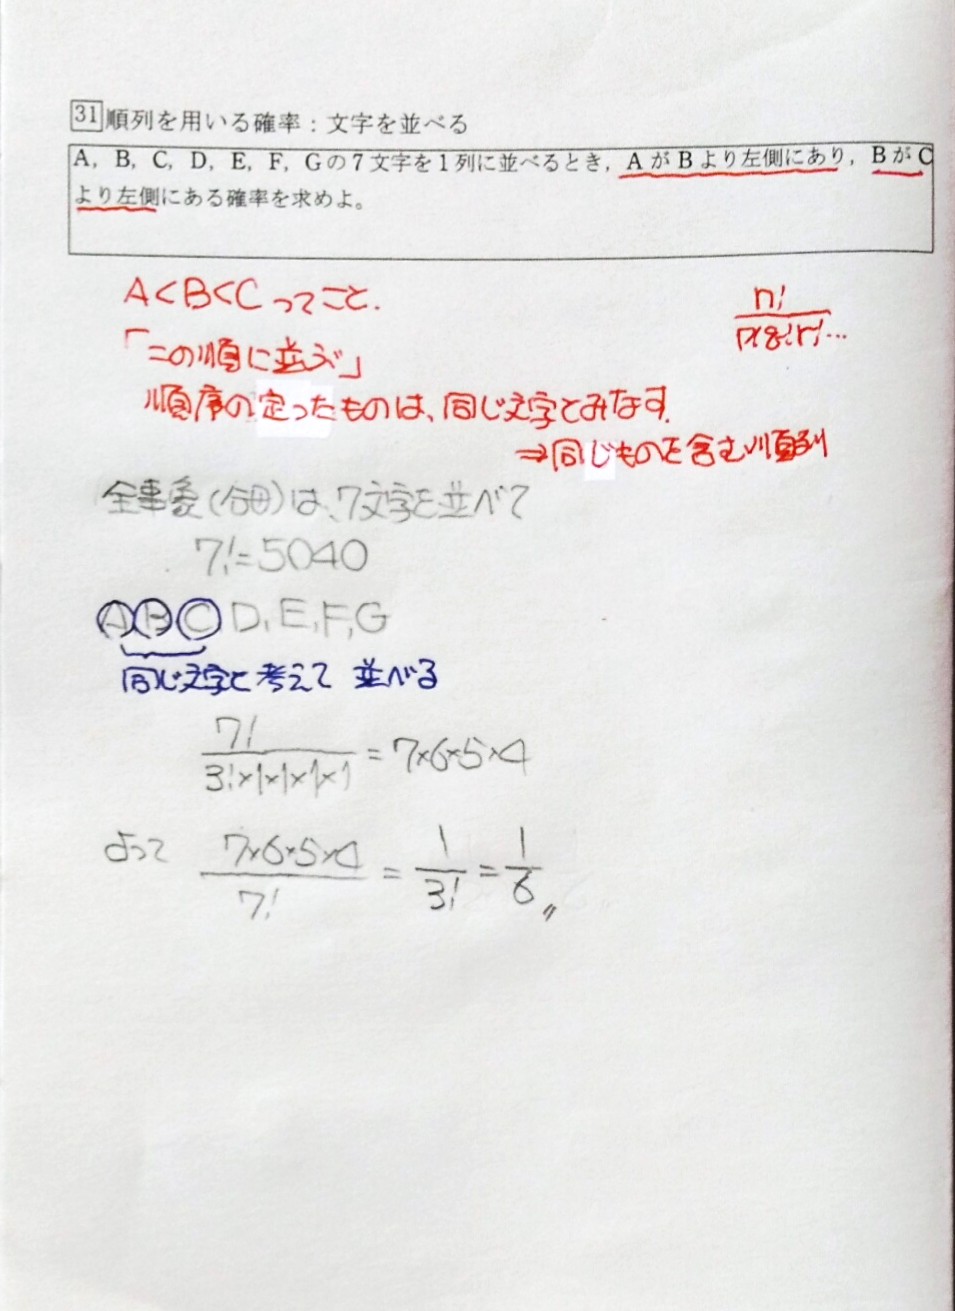 31 順列を用いる確率：文字を並べる
A，B，C，D，E，F，Gの7文字を1列に並べるとき，AがBより左側にあり，BがC
より左側にある確率を求めよ。
A<B<Cってこと.
n!/p!q!r!…
「この順に並ぶ」
順序の定ったものは、同じ文字とみなす.
⇒同じものを含む順列
全事象(分母)は、7文字を並べて
7!=5040
A B C D, E, F, G
同じ文字と考えて 並べる
7!/3!×1×1×1×1 = 7×6×5×4
よって 7×6×5×4/7! = 1/3! = 1/6 〃